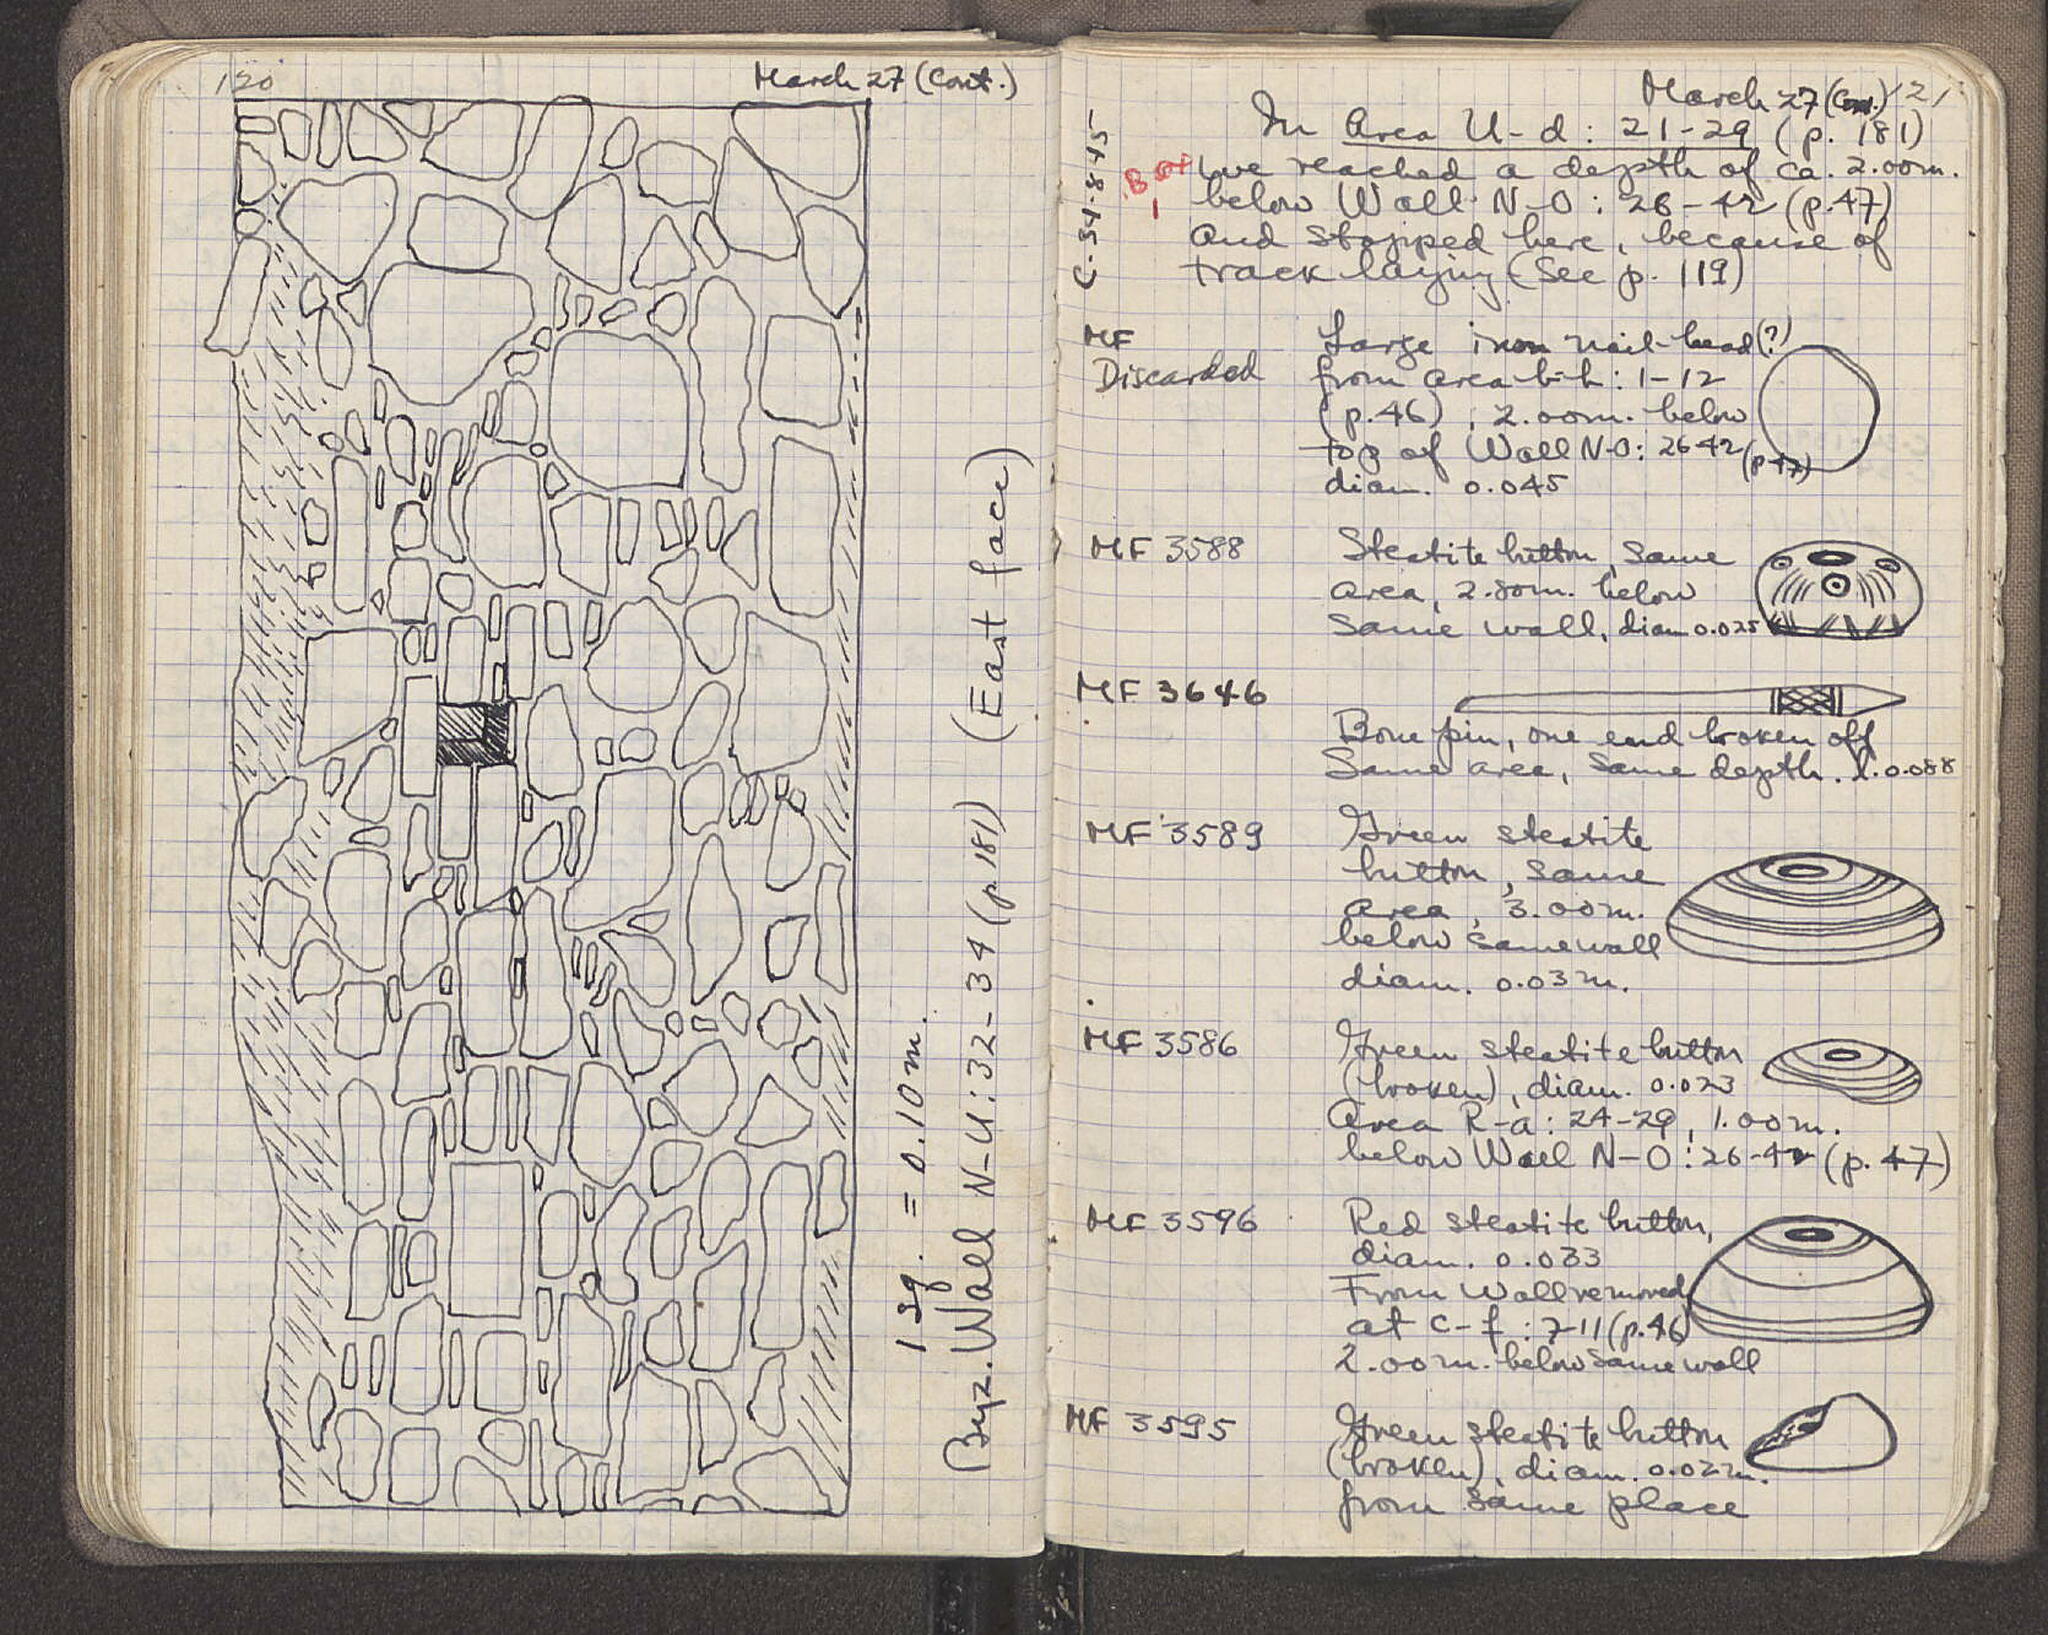 120
March 27 (Cont.)
1 sq. = 0.10 m.
Byz. Wall N-U:32-34 (p 181) (East face)
March 27 (Con.) 121
C-34-845
In Area U-d: 21-29 (p. 181)
we reached a depth of ca. 2.00m.
below Wall N-O: 26-42 (p.47)
and stopped here, because of
track laying (See p. 119)
MF
Discarded
Large iron nail-head(?)
from area b-h: 1-12
(p.46), 2.00m. below
top of Wall N-O: 26-42 (p 47)
diam. 0.045
MF 3588
Steatite button, Same
area, 2.80m. below
same wall, diam 0.025
MF 3646
Bone pin, one end broken off
Same area, same depth. l. 0.088
MF 3589
Green steatite
button, same
area, 3.00m.
below same wall
diam. 0.03m.
MF 3586
Green steatite button
(broken), diam. 0.023
Area R-a: 24-29, 1.00m.
below Wall N-O: 26-42 (p. 47)
MF 3596
Red steatite button,
diam. 0.033
From Wall removed
at c-f: 7-11 (p.46)
2.00m. below same wall
MF 3595
Green steatite button
(broken), diam. 0.022m.
from same place